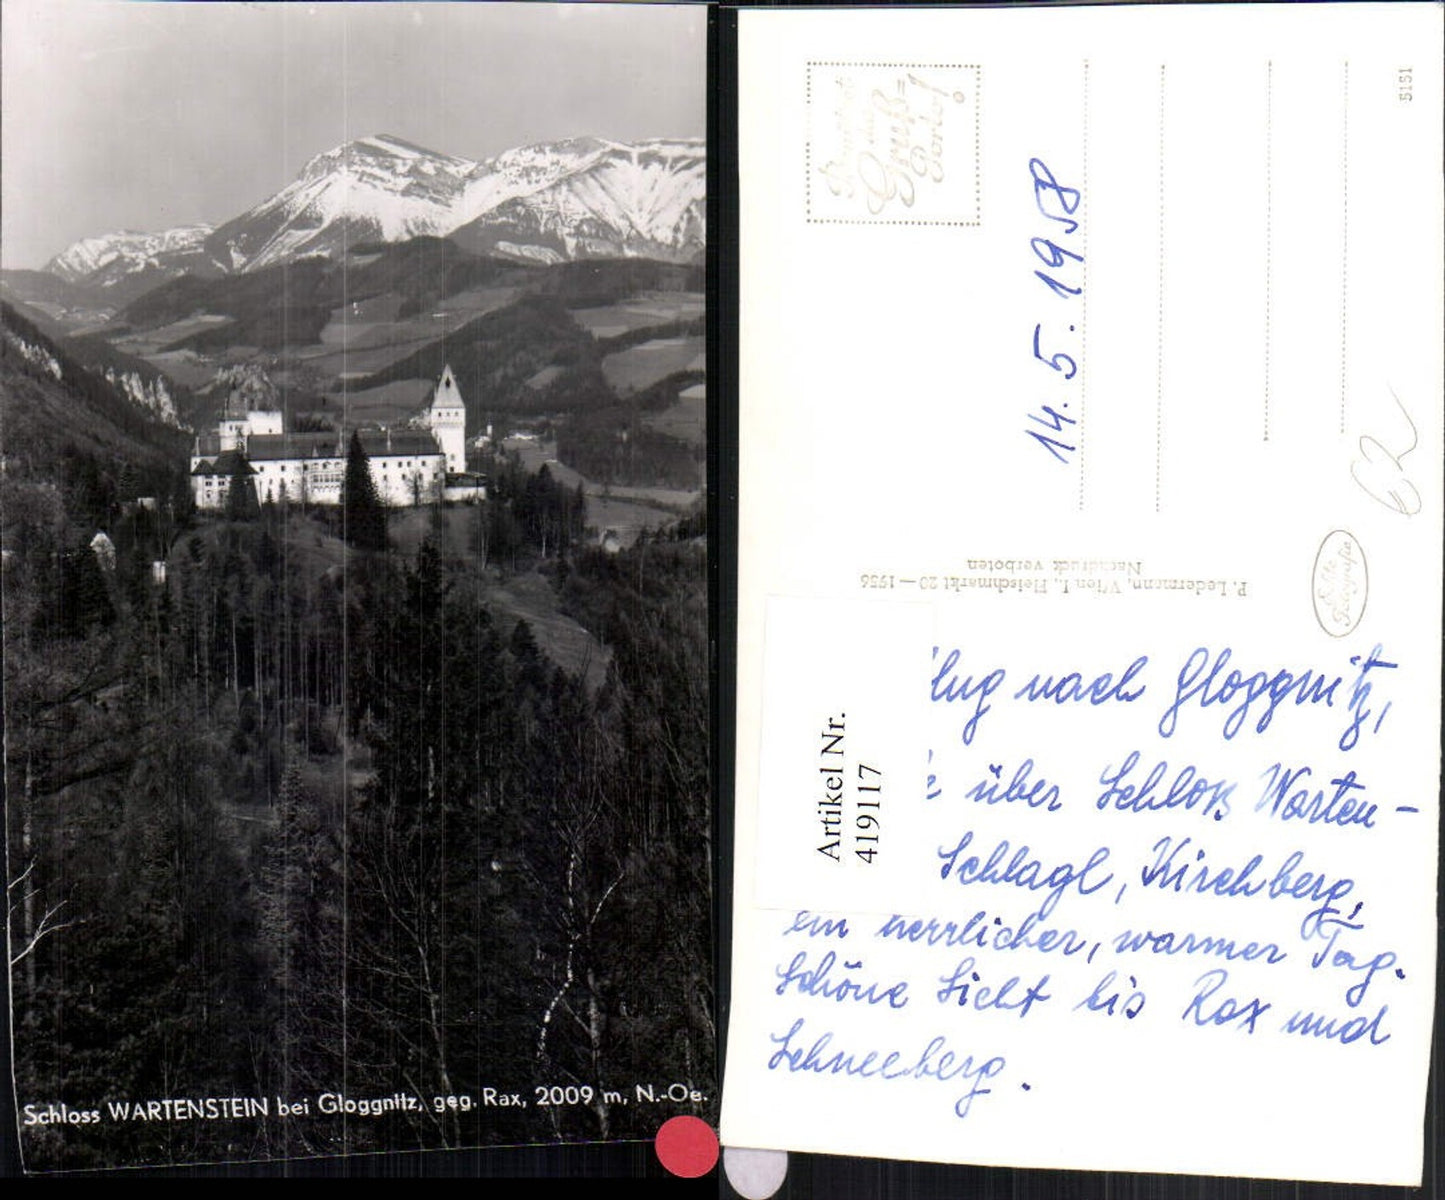 Schloss WARTENSTEIN bei Gloggnitz, geg. Rax, 2009 m, N.-Oe.
5151
14. 5. 1958
62
P. Ledermann, Wien I., Fleischmarkt 20 — 1956
Nachdruck verboten
Echte
Fotografie
Artikel Nr.
419117
flug nach Gloggnitz,
über Schloß Warten-
Schlagl, Kirchberg,
ein herrlicher, warmer Tag.
Schöne Sicht bis Rax und
Schneeberg.